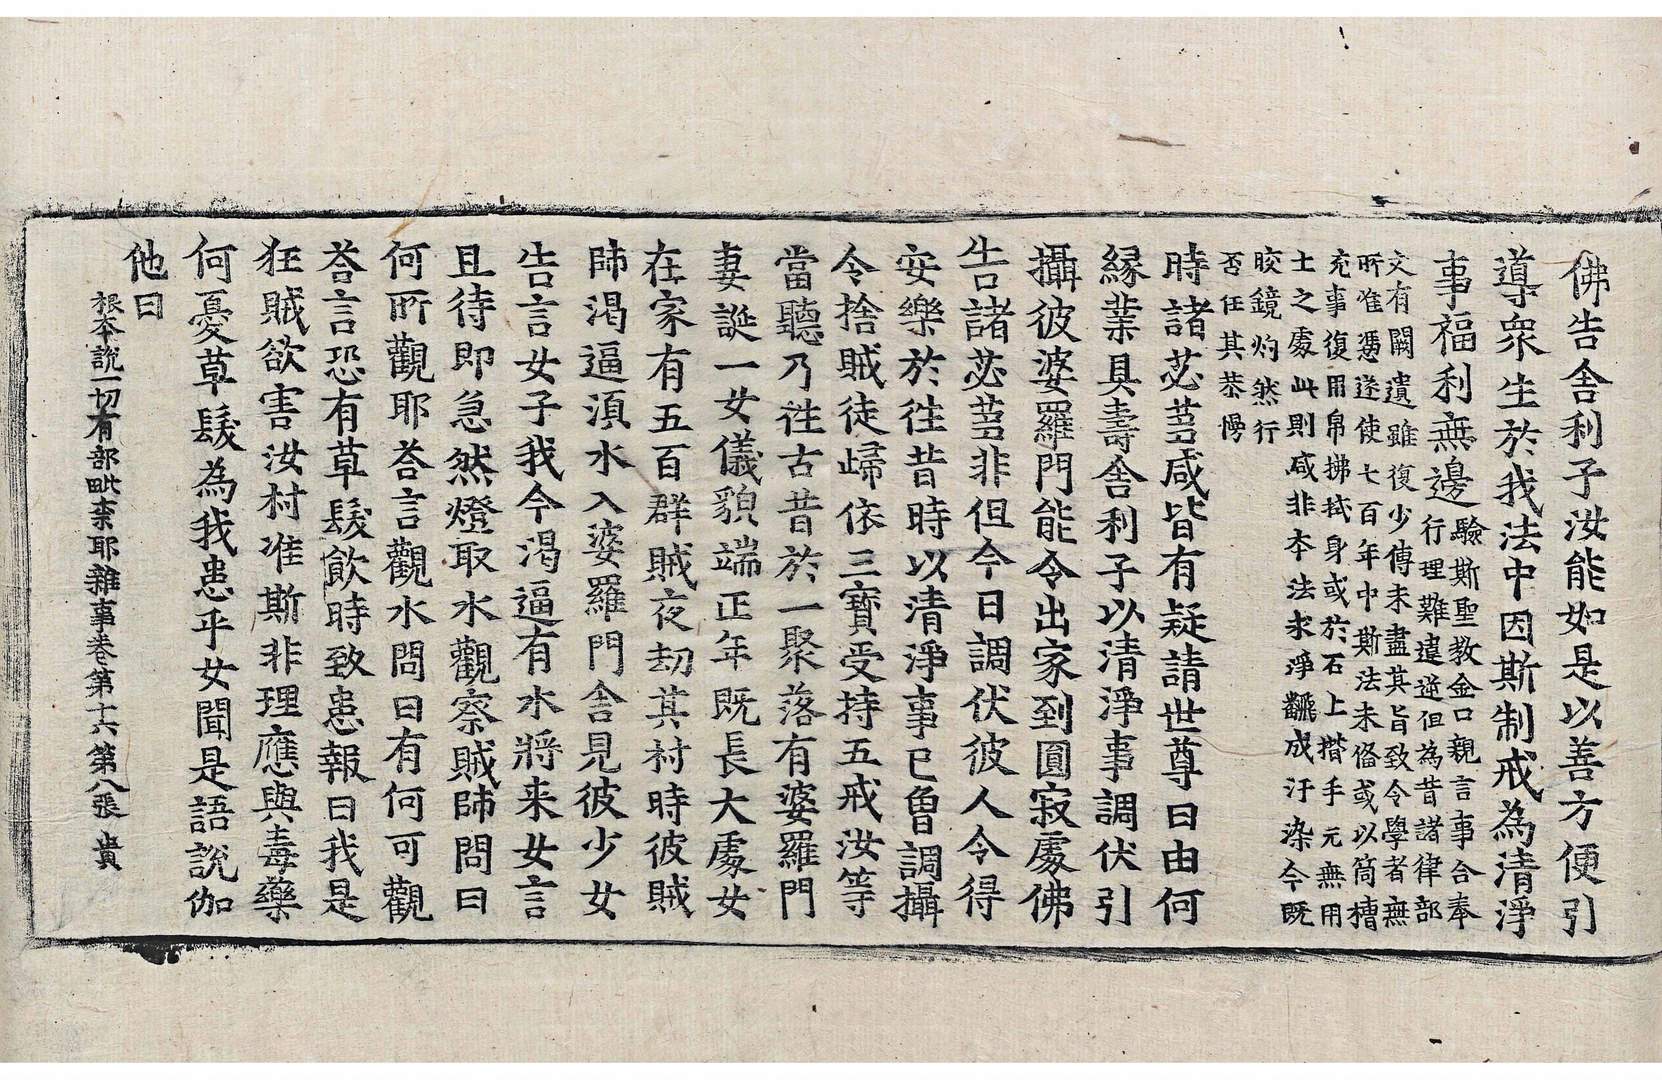 佛告舍利子汝能如是以善方便引
導衆生於我法中因斯制戒為清淨
事福利無邊驗斯聖教金口親言事合奉
行理難違逆但為昔諸律部
文有闕遺雖復少傳未盡其旨致令學者無
所准憑遂使七百年中斯法未俻或以筒槽
充事復用帛拂拭身或於石上揩手元無用
士之處此則咸非本法求淨飜成汙染今既
皎鏡灼然行
否任其恭慢
時諸苾芻咸皆有疑請世尊曰由何
縁業具壽舍利子以清淨事調伏引
攝彼婆羅門能令出家到圓寂處佛
告諸苾芻非但今日調伏彼人令得
安樂於徃昔時以清淨事已曾調攝
令捨賊徒歸依三寶受持五戒汝等
當聽乃徃古昔於一聚落有婆羅門
妻誕一女儀貌端正年既長大處女
在家有五百群賊夜劫其村時彼賊
帥渴逼須水入婆羅門舍見彼少女
告言女子我今渴逼有水將来女言
且待即急然燈取水觀察賊帥問曰
何所觀耶荅言觀水問曰有何可觀
荅言恐有草髮飲時致患報曰我是
狂賊欲害汝村准斯非理應與毒藥
何憂草髮為我患乎女聞是語說伽
他曰
根本說一切有部毗柰耶雜事卷第十六第八張 貴